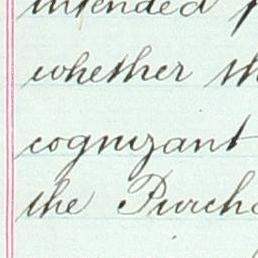 intended
whether th
cognizant
the Purch